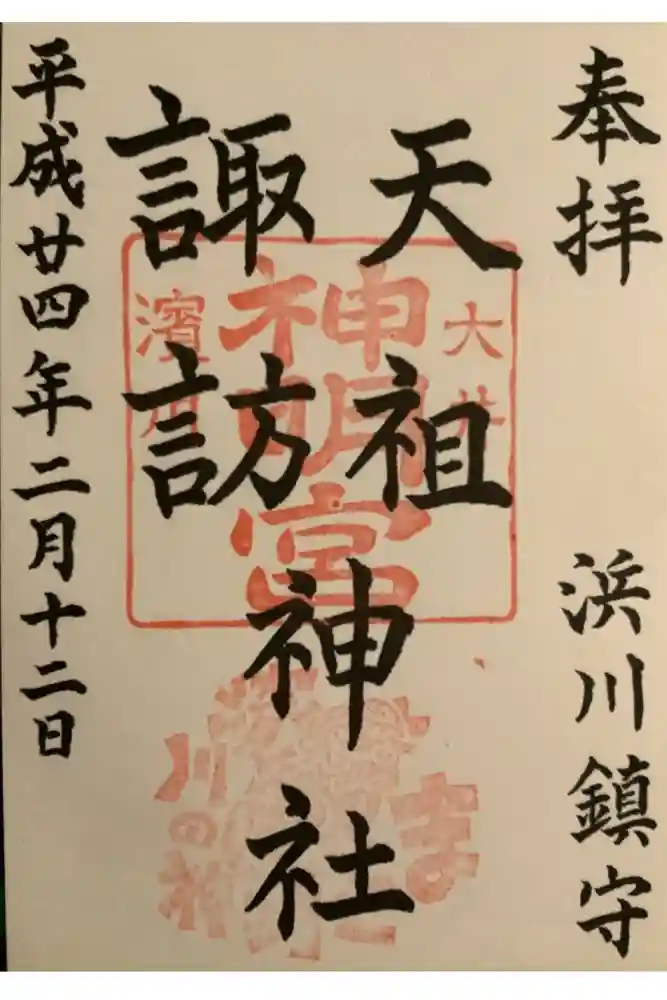 奉拝 浜川鎮守
天祖
諏訪
神社
平成廿四年二月十二日
大井
神明宮
濱川